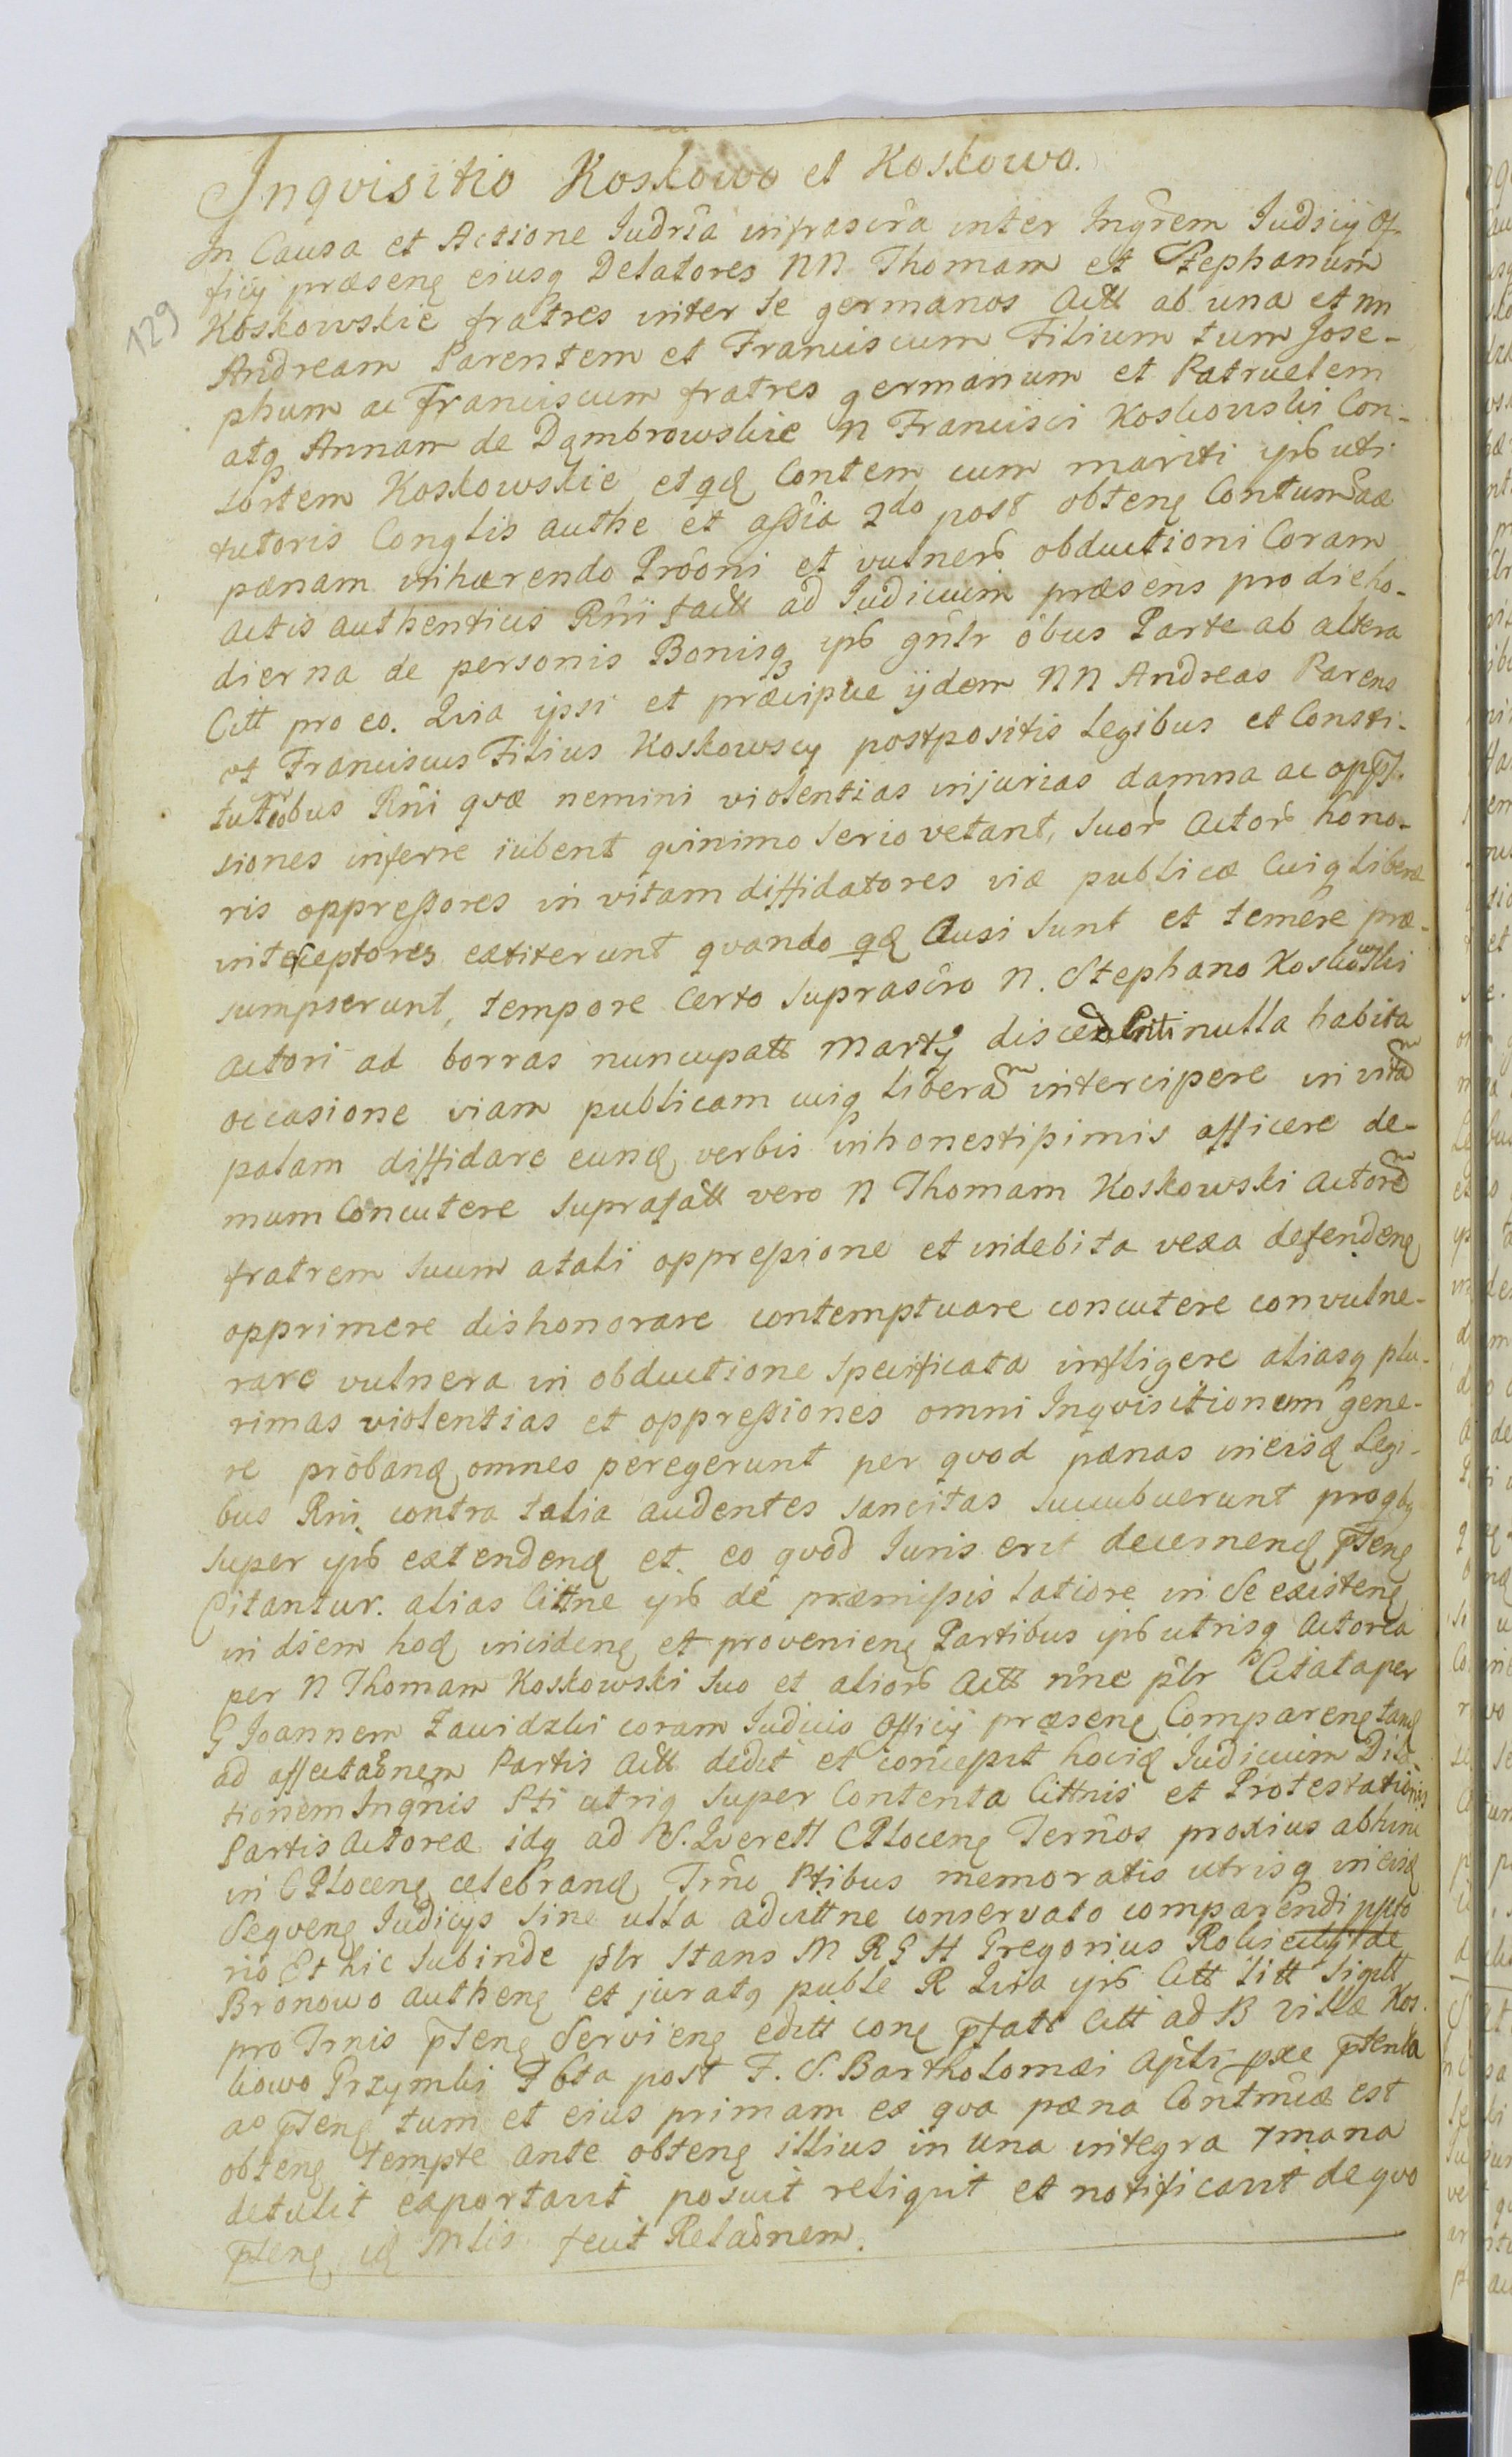 Inqvisitio Koskowo et Koskowo.
In Causa et Actione Judria infrascra inter Ingrem Judicij Of-
ficij præsenę eiusq Delatores NN Thomam et Stephanum
Koskowskie fratres inter se germanos Actt ab una et nn
Andream Parentem et Franciscum Filium tum Jose-
phum ac Franciscum fratres germanum et Patruelem
atq Annam de Dąmbrowskie N Francisci Koskowski Con-
sortem Koskowskie etqę Contem cum mariti ipß uti
tutoris Conglis authe et assia 2do post obtenę Contumaæ
pænam inhærendo Prôoni et vulnerß obductioni Coram
actis authenticis Rñi factt ad Judicium præsens pro die ho-
dierna de personis Bonisq ipß gñlr ôbus Parte ab altera
Citt pro eo. Qvia ipsi et præcipue ijdem NN Andreas Parens
et Franciscus Filius Koskowscy postpositis Legibus et Consti-
tutôbus Rñi qvæ nemini violentias injurias damna ac oppß-
siones inferre iubent qvinimo serio vetant, suorß Actorß hono-
ris oppreßores in vitam diffidatores viæ publicæ Cuiq liberæ
interceptores extiterunt qvando qę Ausi sunt et temêre præ-
sumpserunt, tempore Certo suprascro N. Stephano Koskowski
actori ad borras nuncupatt Martij discedenti nulla habita
occasione viam publicam cuiq liberam intercipere in vitam
palam diffidare eunę verbis inhonestißimis afficere de-
mum Concutere suprafatt vero N Thomam Koskowski Actorem
fratrem suum a tali oppreßione et indebita vexa defendenę
opprimere dishonorare contemptuare concutere convulne-
rare vulnera in obductione specificata infligere aliasq plu-
rimas violentias et oppreßiones omni Inqvisitionum gene-
re probanę omnes peregerunt per qvod pænas in eisę Legi-
bus Rni contra talia audentes sancitas succubuerunt pro qby
super ipß extendenę et eo qvod Juris erit decernenę ptenę
Citantur. alias Cittne ipß de præmißis latiore in se existenę
in diem hoę incidenę et provenienę Partibus ipß utrisq Actorea
per N Thomam Koskowski suo et aliorß Actt nñe pslr Citata per
G Joannem Zawidzki coram Judicio Officij præsenę Comparenę tanę
ad affectaônem Partis Actt dedit et concepit hocię Judicium Dila-
tionem Inqnis Pti utriq super Contenta Cittnis et Protestationis
Partis Actoreæ idq ad S. Qverett CPlocenę Ternôos proxius abhinc
in CPlocenę celebranę Trño Ptibus memoratis utrisq in eisę
Seqvenę Judicijs sine ulla adcittne conservato comparendi ppto
rio Et hic subinde pslr stans M R G H Gregorius de
Bronowo authenę et juratq puble R Qvia ipß Citt litt siglt
pro Trnis ptenę Servienę editt conę pfatt Citt ad B villæ Kos-
kowo Przymki F 6ta post F. S. Bartholomæi Apsli pxe ptenta
a° ptenę tum et eius primam ex qva pæna Contmciæ est
obtenę tempte ante obtenę illius in una integra 7mana
detulit exportavit posuit reliqvit et notificavit de qvo
ptenę ię Mlis fecit Relaônem.
129